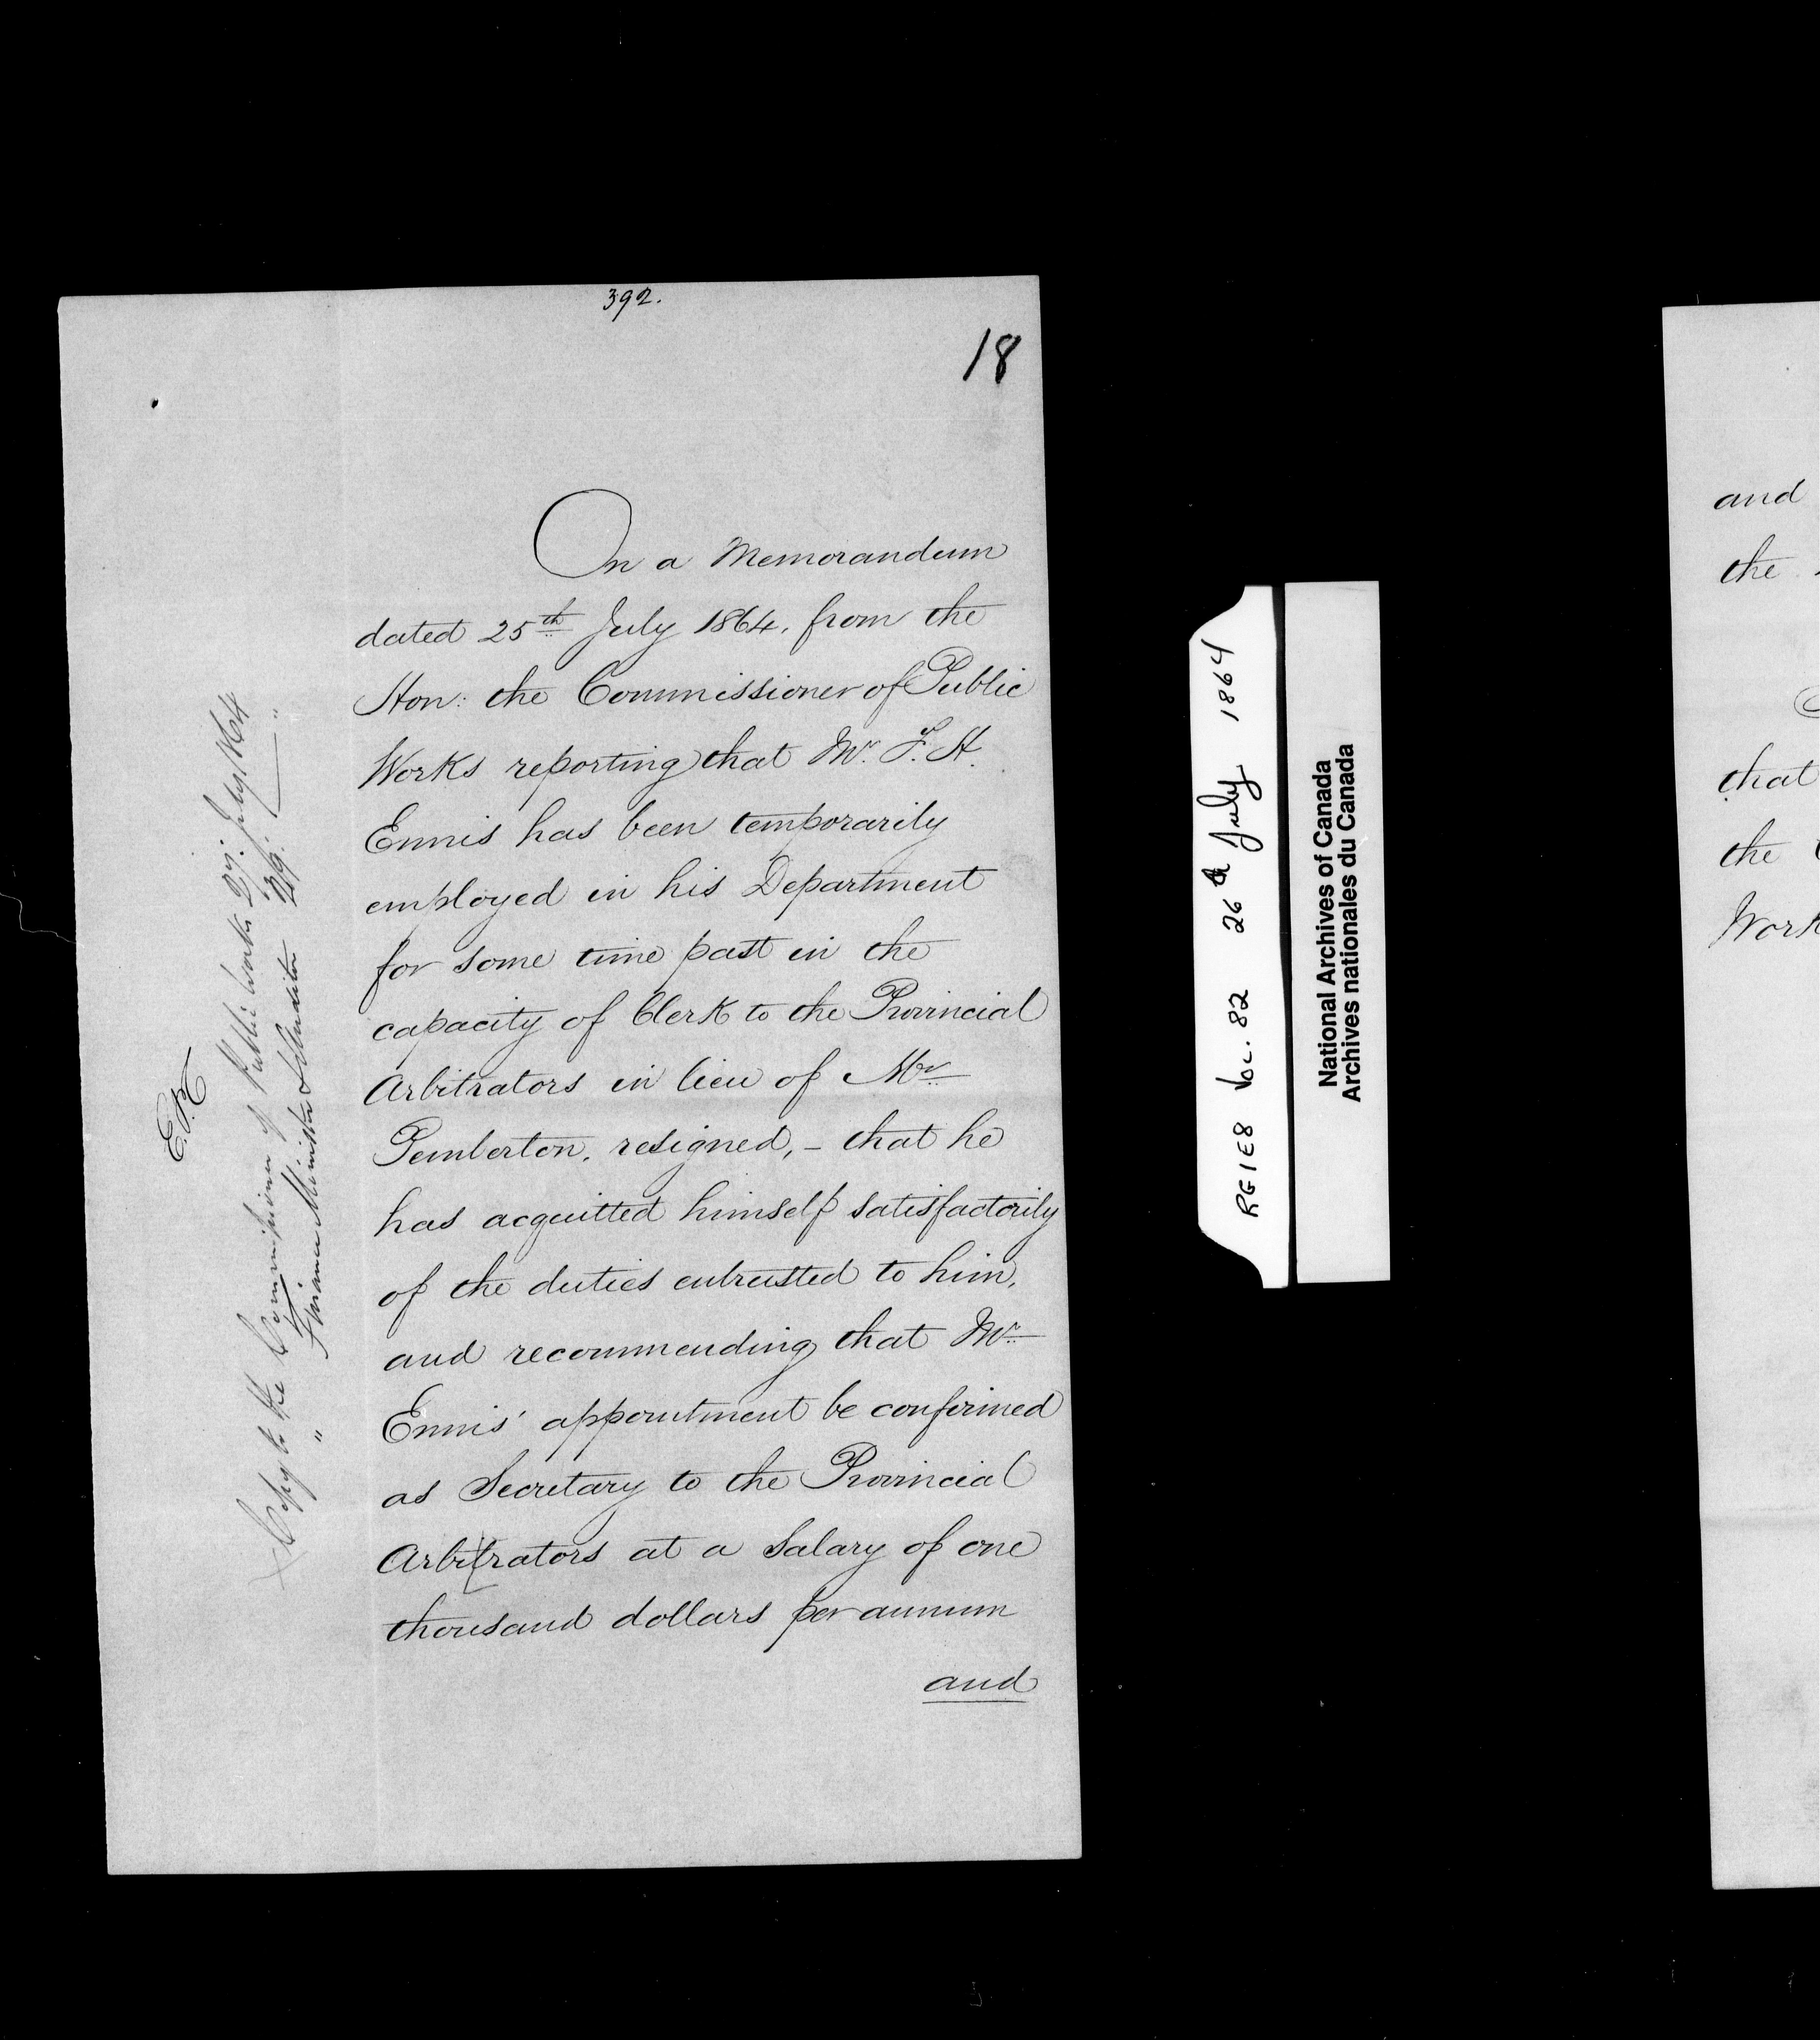 392.
18
On a Memorandum
dated 25th July 1864. from the
Hon: the Commissioner of Public
Works reporting that Mr. F. H.
Ennis has been temporarily
employed in his Department
for some time past in the
capacity of Clerk to the Provincial
Arbitrators in lieu of Mr.
Pemberton, resigned, – that he
has acquitted himself satisfactorily
of the duties entrusted to him,
and recommending that Mr.
Ennis' appointment be confirmed
as Secretary to the Provincial
Arbitrators at a Salary of one
thousand dollars per annum
and
Copy to the Commissioner of Public Works 27. July/64
" Finance Minister & Auditor 29. "
RG1E8 Vol. 82 26th July 1864
National Archives of Canada
Archives nationales du Canada
and
the
that
the
Work